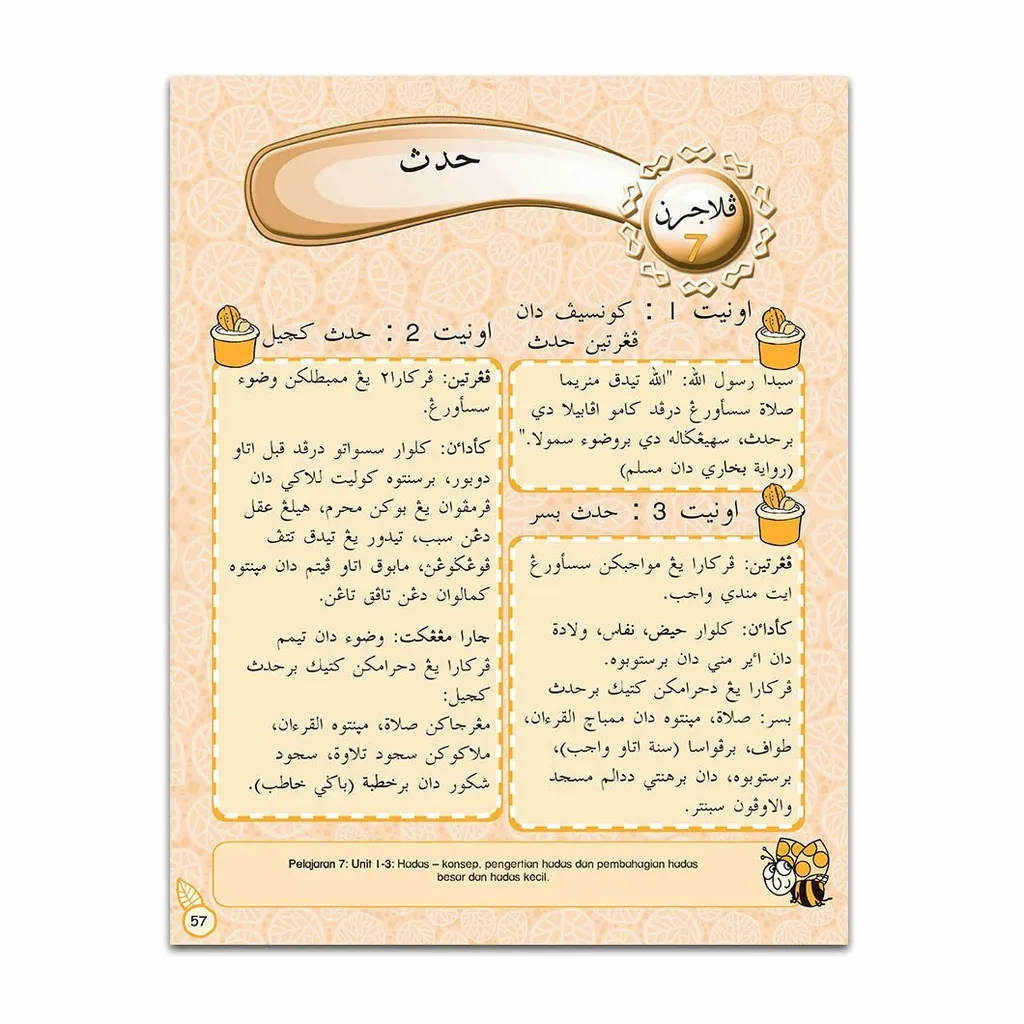 حدث
ڤلاجرن
7
اونيت 1 : كونسيڤ دان
ڤڠرتين حدث
سبدا رسول الله: "الله تيدق منريما
صلاة سسأورڠ درڤد كامو اڤابيلا دي
برحدث، سهيڠݢاله دي بروضوء سمولا."
(رواية بخاري دان مسلم)
اونيت 2 : حدث كچيل
ڤڠرتين: ڤركارا٢ يڠ ممبطلكن وضوء
سسأورڠ.
كأداءن: كلوار سسواتو درڤد قبل اتاو
دوبور، برسنتوه كوليت للاكي دان
ڤرمڤوان يڠ بوكن محرم، هيلڠ عقل
دڠن سبب، تيدور يڠ تيدق تتڤ
ڤوڠݢوڠن، مابوق اتاو ڤيتم دان مڽنتوه
كمالوان دڠن تاڤق تاڠن.
چارا مڠڠكت: وضوء دان تيمم
ڤركارا يڠ دحرامكن كتيك برحدث
كچيل:
مڠرجاكن صلاة، مڽنتوه القرءان،
ملاكوكن سجود تلاوة، سجود
شكور دان برخطبة (باݢي خاطب).
اونيت 3 : حدث بسر
ڤڠرتين: ڤركارا يڠ مواجبكن سسأورڠ
ايت مندي واجب.
كأداءن: كلوار حيض، نفاس، ولادة
دان اءير مني دان برستوبوه.
ڤركارا يڠ دحرامكن كتيك برحدث
بسر: صلاة، مڽنتوه دان ممباچ القرءان،
طواف، برڤواسا (سنة اتاو واجب)،
برستوبوه، دان برهنتي ددالم مسجد
والاوڤون سبنتر.
Pelajaran 7: Unit 1-3: Hadas – konsep, pengertian hadas dan pembahagian hadas
besar dan hadas kecil.
57